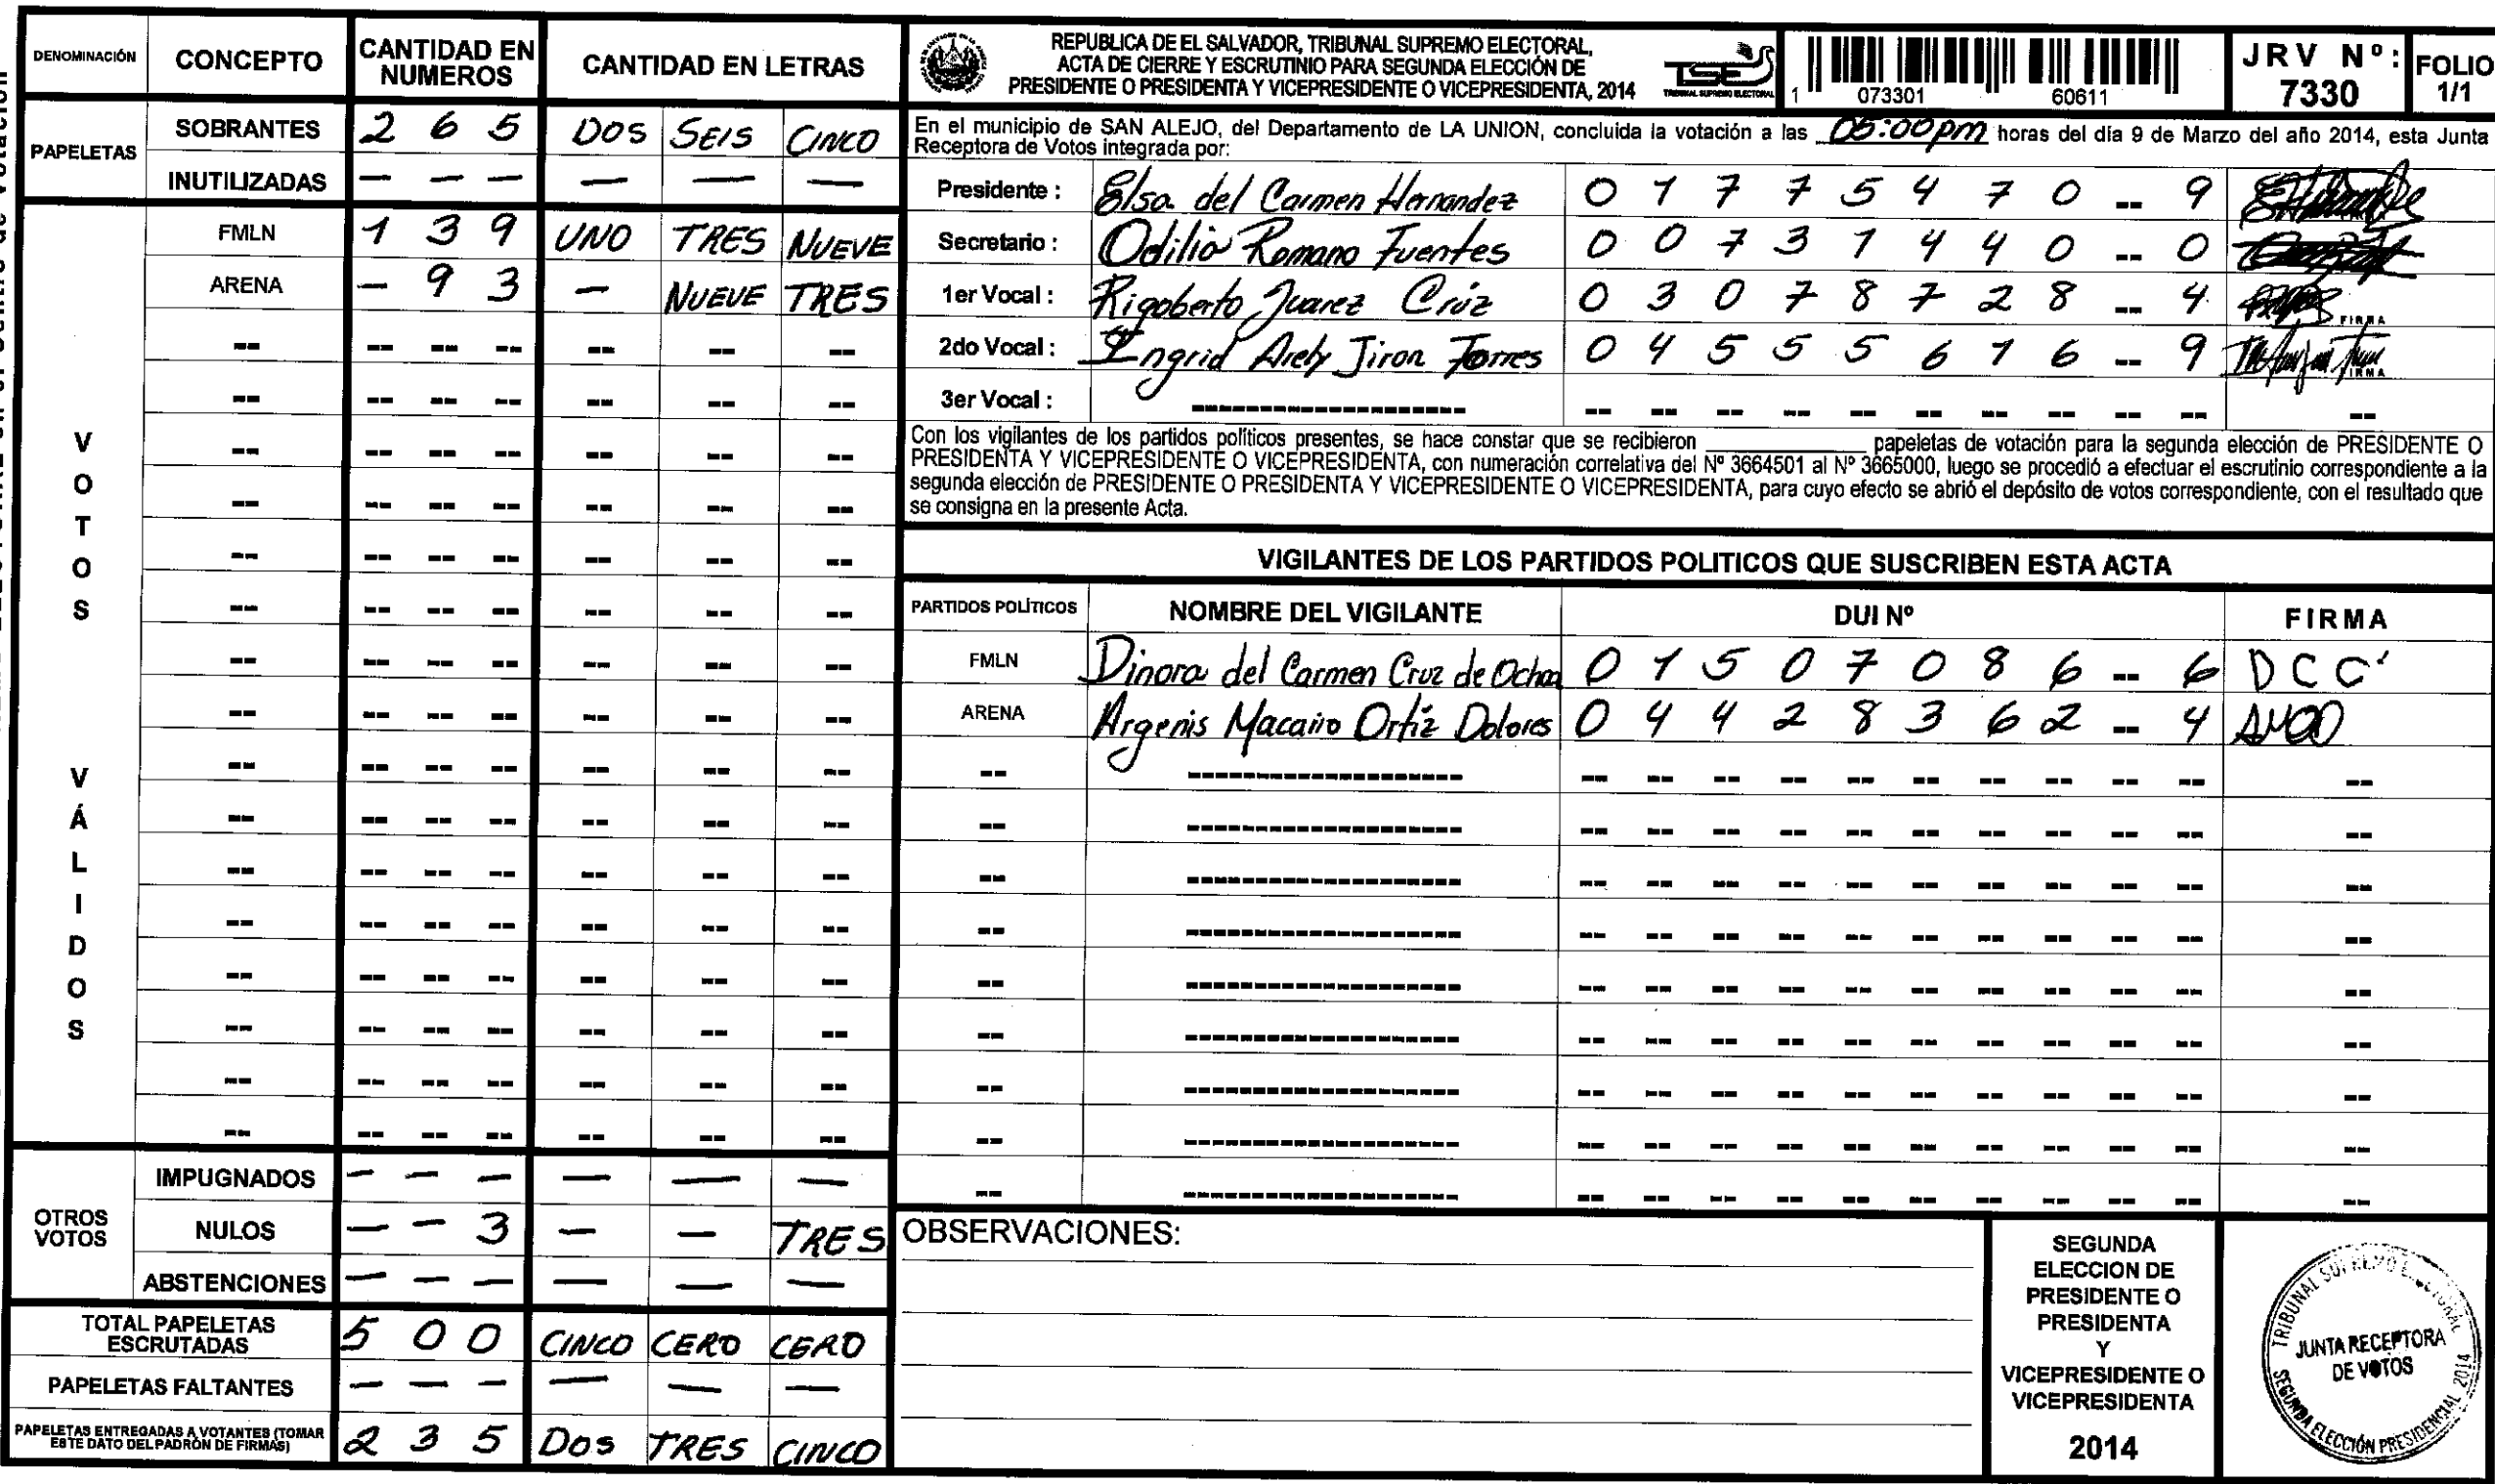 DENOMINACIÓN CONCEPTO CANTIDAD EN NUMEROS CANTIDAD EN LETRAS
PAPELETAS
SOBRANTES 2 6 5 DOS SEIS CINCO
INUTILIZADAS — — — — — —
VOTOS VÁLIDOS
FMLN 1 3 9 UNO TRES NUEVE
ARENA — 9 3 — NUEVE TRES
OTROS VOTOS
IMPUGNADOS — — — — — —
NULOS — — 3 — — TRES
ABSTENCIONES — — — — — —
TOTAL PAPELETAS ESCRUTADAS 5 0 0 CINCO CERO CERO
PAPELETAS FALTANTES — — — — — —
PAPELETAS ENTREGADAS A VOTANTES (TOMAR ESTE DATO DEL PADRÓN DE FIRMAS) 2 3 5 DOS TRES CINCO
REPUBLICA DE EL SALVADOR, TRIBUNAL SUPREMO ELECTORAL,
ACTA DE CIERRE Y ESCRUTINIO PARA SEGUNDA ELECCIÓN DE
PRESIDENTE O PRESIDENTA Y VICEPRESIDENTE O VICEPRESIDENTA, 2014
TSE
TRIBUNAL SUPREMO ELECTORAL
1 073301 60611
JRV Nº: 7330
FOLIO 1/1
En el municipio de SAN ALEJO, del Departamento de LA UNION, concluida la votación a las 05:00 pm horas del día 9 de Marzo del año 2014, esta Junta
Receptora de Votos integrada por:
Presidente : Elsa del Carmen Hernandez 0 1 7 7 5 4 7 0 -- 9
Secretario : Odilio Romano Fuentes 0 0 7 3 1 4 4 0 -- 0
1er Vocal : Rigoberto Juarez Crúz 0 3 0 7 8 7 2 8 -- 4 FIRMA
2do Vocal : Ingrid Jiron Torres 0 4 5 5 5 6 1 6 -- 9 FIRMA
3er Vocal :
Con los vigilantes de los partidos políticos presentes, se hace constar que se recibieron ________ papeletas de votación para la segunda elección de PRESIDENTE O
PRESIDENTA Y VICEPRESIDENTE O VICEPRESIDENTA, con numeración correlativa del Nº 3664501 al Nº 3665000, luego se procedió a efectuar el escrutinio correspondiente a la
segunda elección de PRESIDENTE O PRESIDENTA Y VICEPRESIDENTE O VICEPRESIDENTA, para cuyo efecto se abrió el depósito de votos correspondiente, con el resultado que
se consigna en la presente Acta.
VIGILANTES DE LOS PARTIDOS POLITICOS QUE SUSCRIBEN ESTA ACTA
PARTIDOS POLÍTICOS NOMBRE DEL VIGILANTE DUI Nº FIRMA
FMLN Dinora del Carmen Cruz de Ochoa 0 1 5 0 7 0 8 6 -- 6 DCC
ARENA Argenis Macario Ortíz Dolores 0 4 4 2 8 3 6 2 -- 4 AMOD
OBSERVACIONES:
SEGUNDA
ELECCION DE
PRESIDENTE O
PRESIDENTA
Y
VICEPRESIDENTE O
VICEPRESIDENTA
2014
TRIBUNAL SUPREMO ELECTORAL
JUNTA RECEPTORA
DE VOTOS
SEGUNDA ELECCIÓN PRESIDENCIAL 2014